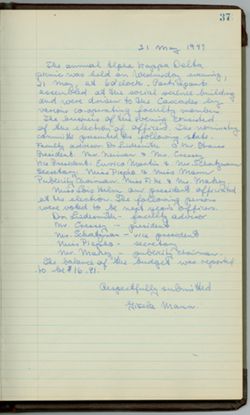 37
21 May 1947
The annual Alpha Kappa Delta
picnic was held on Wednesday evening,
21 May, at 6 o'clock. Participants
assembled at the social service building
and were driven to the Cascades by
various co-operating faculty members.
The business of the evening consisted
of the election of officers. The nominating
committee presented the following slate:
Faculty advisor Dr. Lindesmith
President Mr. Cressey
Vice President: Mr. Schatzman
Secretary: Miss Piepho & Miss Mann
Publicity Chairman Mr. Mahoy
Miss Lois Helm as president officiated
at the election. The following persons
were voted to be next year's officers.
Dr. Lindesmith - faculty advisor
Mr. Cressey - president
Mr. Schatzman - vice president
Miss Piepho - secretary
publicity chairman
The balance of the budget was reported
to be $16.91.
Respectfully submitted
Gisela Mann